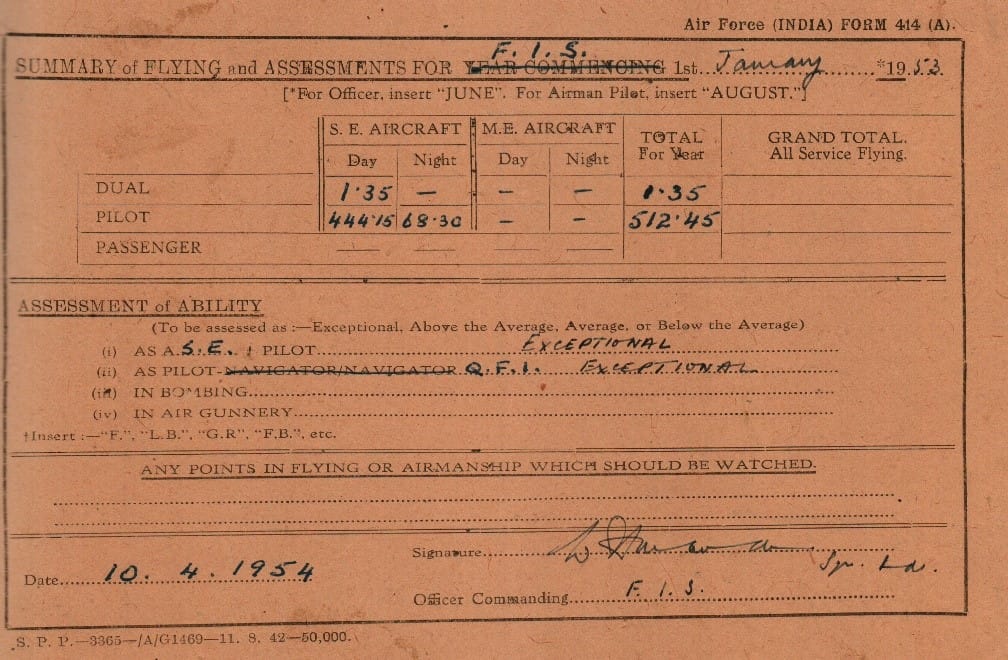 Air Force (INDIA) FORM 414 (A).
F. I. S.
SUMMARY of FLYING and ASSESSMENTS FOR YEAR COMMENCING 1st January *1953
[*For Officer, insert "JUNE". For Airman Pilot, insert "AUGUST."]
S. E. AIRCRAFT M.E. AIRCRAFT TOTAL For Year GRAND TOTAL. All Service Flying.
Day Night Day Night
DUAL 1·35 — — — 1·35
PILOT 444·15 68·30 — — 512·45
PASSENGER — — — —
ASSESSMENT of ABILITY
(To be assessed as :—Exceptional, Above the Average, Average, or Below the Average)
(i) AS A S.E. † PILOT EXCEPTIONAL
(ii) AS PILOT-NAVIGATOR/NAVIGATOR Q.F.I. EXCEPTIONAL
(iii) IN BOMBING
(iv) IN AIR GUNNERY
†Insert :—"F.", "L.B.", "G.R", "F.B.", etc.
ANY POINTS IN FLYING OR AIRMANSHIP WHICH SHOULD BE WATCHED.
Signature Sqn. Ldr.
Date 10. 4. 1954
Officer Commanding F. I. S.
S. P. P.—3365—/A/G1469—11. 8. 42—50,000.